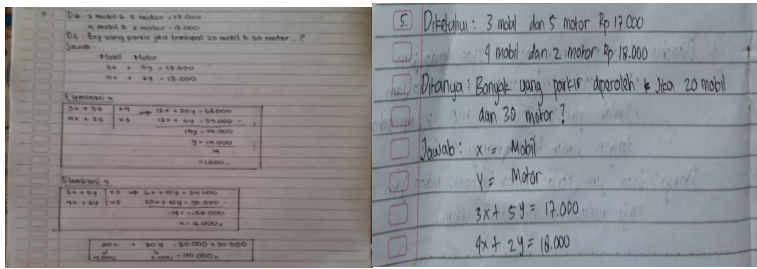 5. Dik: 3 mobil & 5 motor = 17.000
4 mobil & 2 motor = 18.000
Dit: Brp uang parkir jika terdapat 20 mobil & 30 motor...?
Jawab:
Mobil Motor
3x + 5y = 17.000
4x + 2y = 18.000
Eleminasi x
3x + 5y | x4 → 12x + 20y = 68.000
4x + 2y | x3 12x + 6y = 54.000 -
14y = 14.000
y = 14.000
14
= 1.000
Eleminasi y
3x + 5y | x2 → 6x + 10y = 34.000
4x + 2y | x5 20x + 10y = 90.000 -
-14x = -56.000
x = 4.000
20x + 30y = 80.000 + 30.000
4.000 = 110.000
5. Diketahui: 3 mobil dan 5 motor Rp 17.000
4 mobil dan 2 motor Rp 18.000
Ditanya: Banyak uang parkir diperoleh Jika 20 mobil
dan 30 motor?
Jawab: x = Mobil
y = Motor
3x + 5y = 17.000
4x + 2y = 18.000